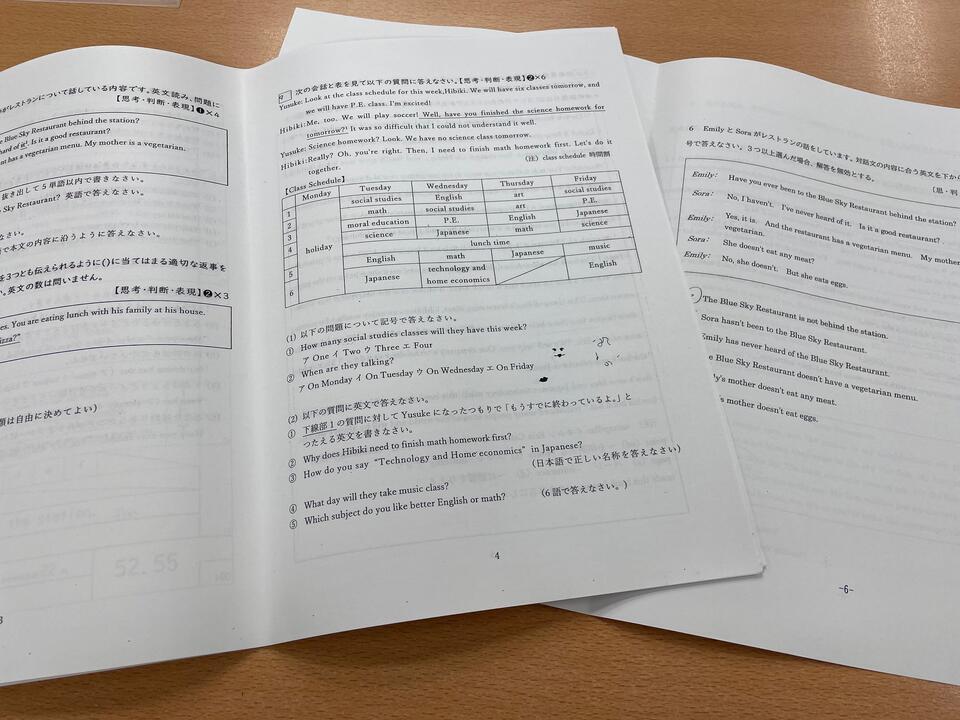 がレストランについて話している内容です。英文読み、問題に
【思考・判断・表現】❶×4
e Blue Sky Restaurant behind the station?
heard of it! Is it a good restaurant?
nt has a vegetarian menu. My mother is a vegetarian.
抜き出して５単語以内で書きなさい。
Sky Restaurant? 英語で答えなさい。
なさい。
で本文の内容に沿うように答えなさい。
を3つとも伝えられるように()に当てはまる適切な返事を
い。英文の数は問いません。
【思考・判断・表現】❷×3
es. You are eating lunch with his family at his house.
izza?"
類は自由に決めてよい）
52.55
3
次の会話と表を見て以下の質問に答えなさい。【思考・判断・表現】❷×6
Yusuke: Look at the class schedule for this week,Hibiki. We will have six classes tomorrow, and
we will have P.E. class. I'm excited!
Hibiki: Me, too. We will play soccer! Well, have you finished the science homework for
tomorrow?¹ It was so difficult that I could not understand it well.
Yusuke: Science homework? Look. We have no science class tomorrow.
Hibiki: Really? Oh, you're right. Then, I need to finish math homework first. Let's do it
together.
(注) class schedule 時間割
【Class Schedule】
Monday Tuesday Wednesday Thursday Friday
1 social studies English art social studies
2 math social studies art P.E.
3 moral education P.E. English Japanese
4 holiday science Japanese math science
lunch time
5 English math Japanese music
6 Japanese technology and home economics English
(1) 以下の問題について記号で答えなさい。
① How many social studies classes will they have this week?
ア One イ Two ウ Three エ Four
② When are they talking?
ア On Monday イ On Tuesday ウ On Wednesday エ On Friday
(2) 以下の質問に英文で答えなさい。
① 下線部１の質問に対して Yusuke になったつもりで「もうすでに終わっているよ。」と
つたえる英文を書きなさい。
② Why does Hibiki need to finish math homework first?
③ How do you say "Technology and Home economics" in Japanese?
（日本語で正しい名称を答えなさい）
④ What day will they take music class?
⑤ Which subject do you like better English or math? （6 語で答えなさい。）
4
6 Emily と Sora がレストランの話をしています。対話文の内容に合う英文を下から
号で答えなさい。３つ以上選んだ場合、解答を無効とする。
【思・判
Emily: Have you ever been to the Blue Sky Restaurant behind the station?
Sora: No, I haven't. I've never heard of it. Is it a good restaurant?
Emily: Yes, it is. And the restaurant has a vegetarian menu. My mother
vegetarian.
Sora: She doesn't eat any meat?
Emily: No, she doesn't. But she eats eggs.
The Blue Sky Restaurant is not behind the station.
Sora hasn't been to the Blue Sky Restaurant.
Emily has never heard of the Blue Sky Restaurant.
e Blue Sky Restaurant doesn't have a vegetarian menu.
y's mother doesn't eat any meat.
's mother doesn't eat eggs.
-6-